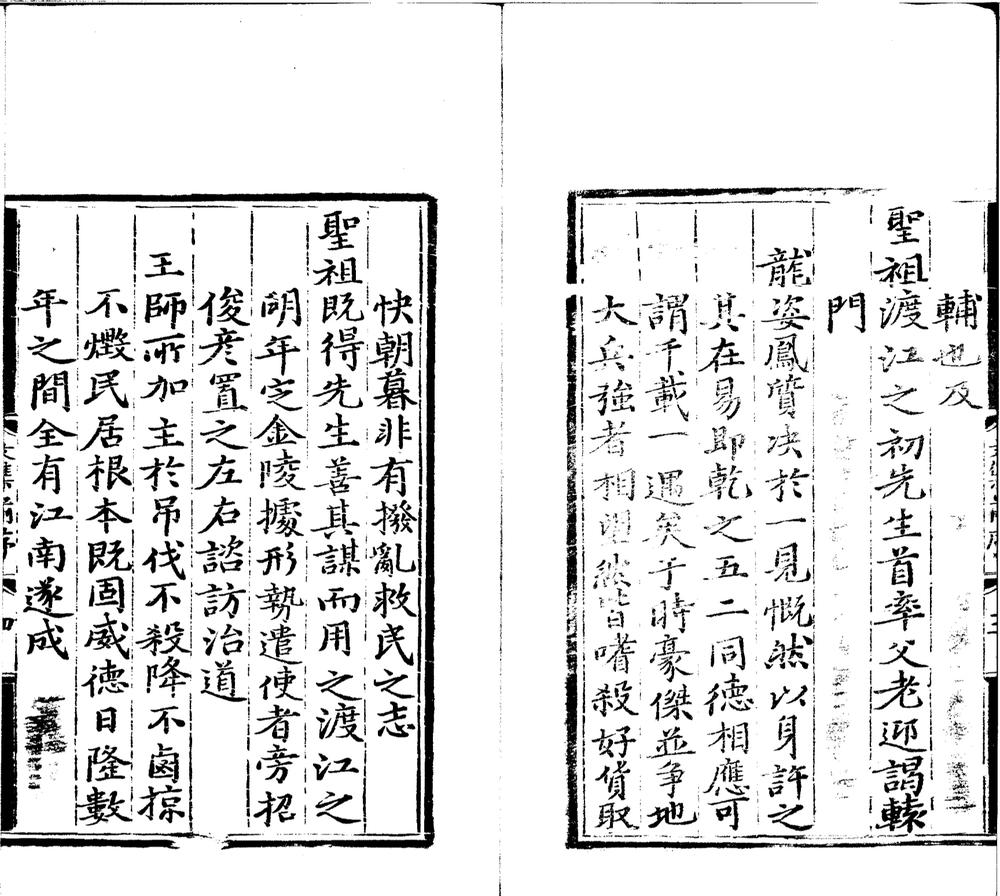 輔也及
聖祖渡江之初先生首率父老迎謁轅
門
龍姿鳳質决於一見慨然以身許之
其在易即乾之五二同德相應可
謂千載一遇矣于時豪傑並爭地
大兵強者相望然皆嗜殺好貨取
快朝暮非有撥亂救民之志
聖祖既得先生善其謀而用之渡江之
明年定金陵據形勢遣使者旁招
俊彦置之左右諮訪治道
王師所加主於吊伐不殺降不鹵掠
不燬民居根本既固威德日隆數
年之間全有江南遂成
文集前序 四